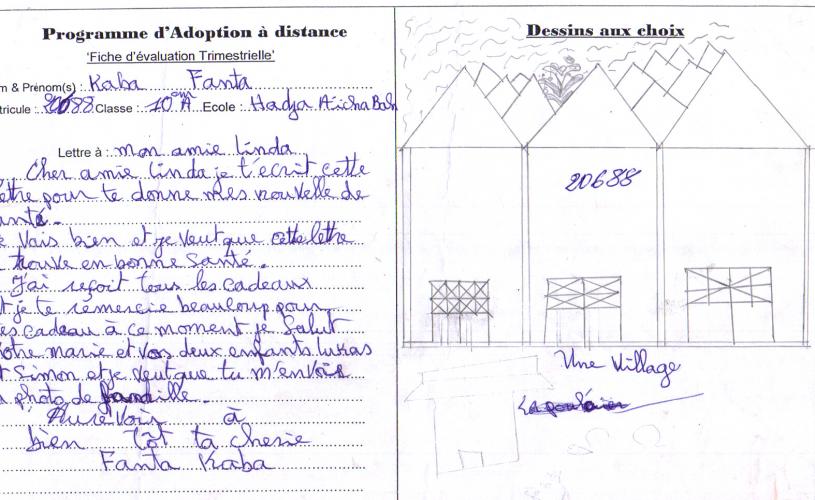 Programme d'Adoption à distance
'Fiche d'évaluation Trimestrielle'
m & Prénom(s) : Kaba Fanta
tricule : 20688 Classe : 10èm A Ecole : Hadja Aïcha Bah
Lettre à : mon amie linda
Cher amie linda je t'écrit cette
ettre pour te donne mes nouvelle de
anté.
e Vais bien et je Veut que cette lettre
trouve en bonne Santé.
J'ai reçoit tous les cadeaux
t je te remercie beaucoup pour
es cadeau à ce moment je Salut
otre marie et Vos deux enfants lucas
t Simon et je Veut que tu m'envois
a photo de famille.
Aure Vois à
bien tôt ta cherie
Fanta Kaba
Dessins aux choix
20688
Une Village